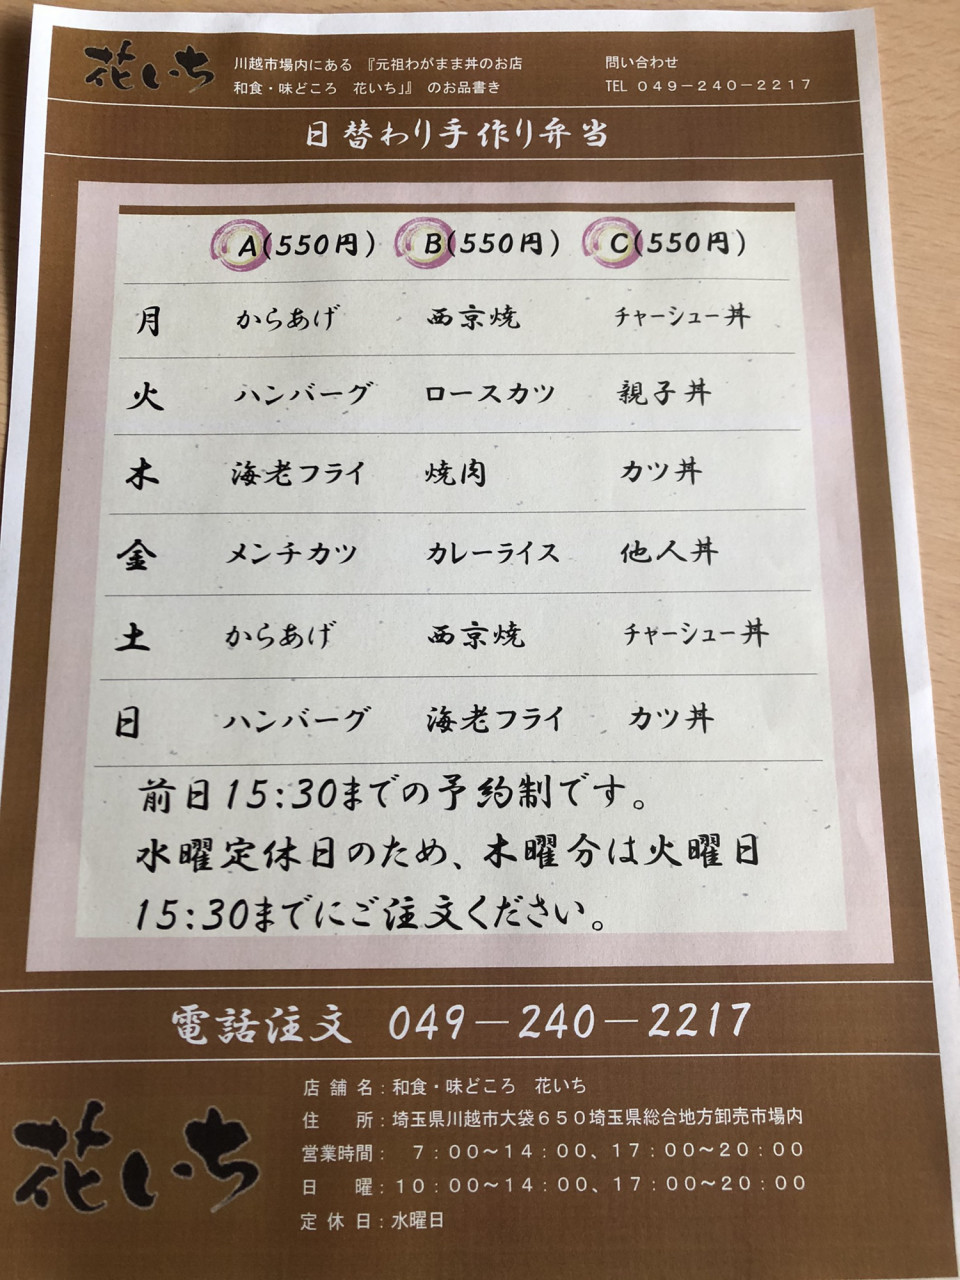 花いち
川越市場内にある 『元祖わがまま丼のお店
和食・味どころ 花いち」』 のお品書き
問い合わせ
TEL 049－240－2217
日替わり手作り弁当
A(550円) B(550円) C(550円)
月 からあげ 西京焼 チャーシュー丼
火 ハンバーグ ロースカツ 親子丼
木 海老フライ 焼肉 カツ丼
金 メンチカツ カレーライス 他人丼
土 からあげ 西京焼 チャーシュー丼
日 ハンバーグ 海老フライ カツ丼
前日15:30までの予約制です。
水曜定休日のため、木曜分は火曜日
15:30までにご注文ください。
電話注文 049－240－2217
花いち
店舗名：和食・味どころ 花いち
住 所：埼玉県川越市大袋650埼玉県総合地方卸売市場内
営業時間： 7：00～14：00、17：00～20：00
日 曜：10：00～14：00、17：00～20：00
定休日：水曜日